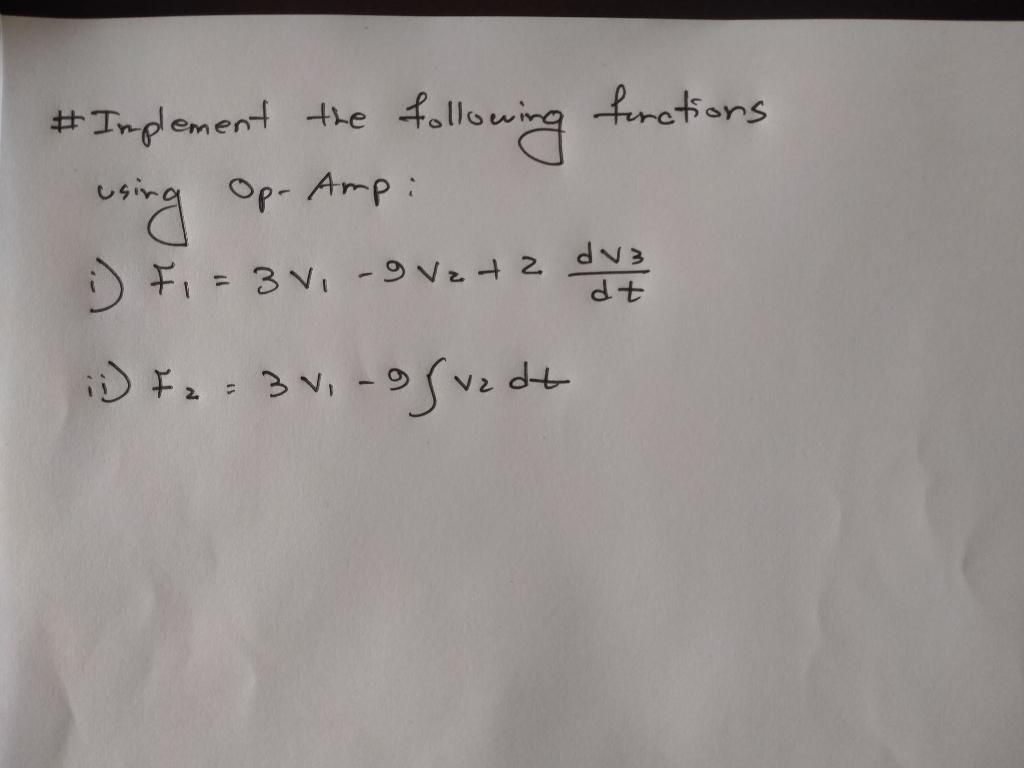 # Implement the following functions
using Op-Amp:
i) F₁ = 3V₁ - 9V₂ + 2 dv₃/dt
ii) F₂ = 3V₁ - 9∫v₂ dt